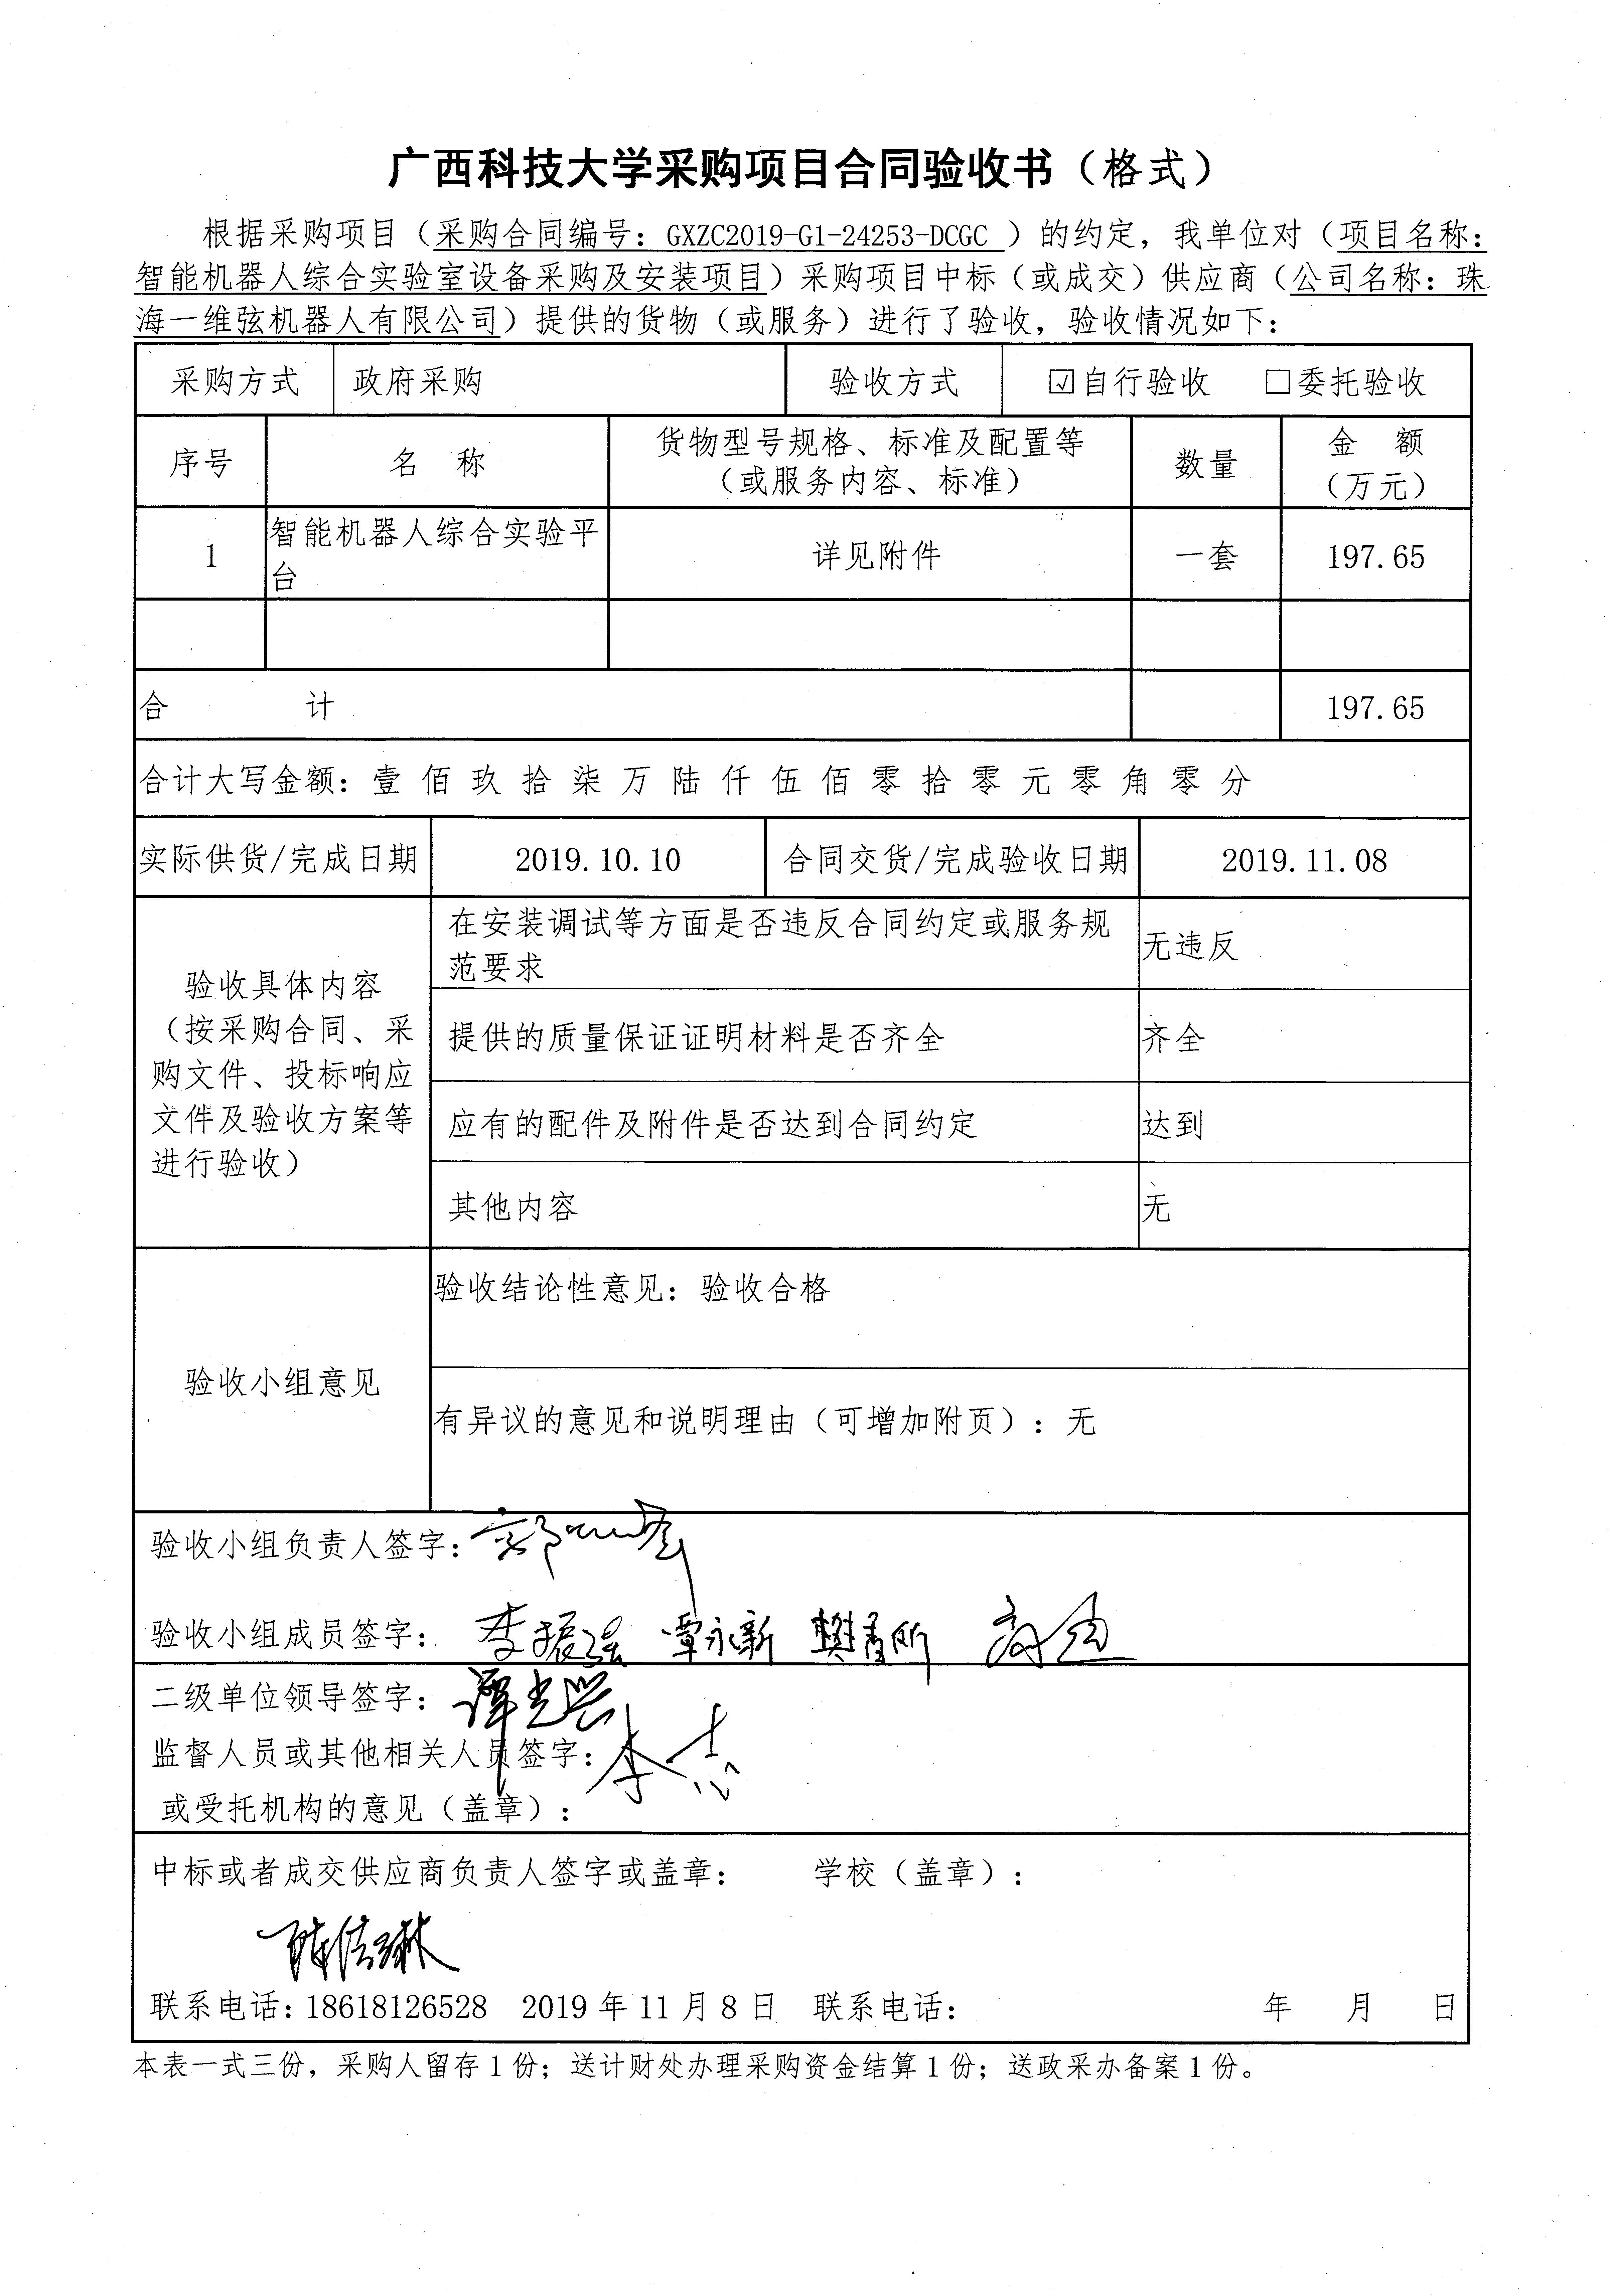 广西科技大学采购项目合同验收书（格式）
根据采购项目（采购合同编号：GXZC2019-G1-24253-DCGC ）的约定，我单位对（项目名称：
智能机器人综合实验室设备采购及安装项目）采购项目中标（或成交）供应商（公司名称：珠
海一维弦机器人有限公司）提供的货物（或服务）进行了验收，验收情况如下：
采购方式 政府采购 验收方式 ☑自行验收 □委托验收
序号 名 称 货物型号规格、标准及配置等 数量 金 额
（或服务内容、标准） （万元）
1 智能机器人综合实验平 详见附件 一套 197.65
台
合 计 197.65
合计大写金额：壹佰玖拾柒万陆仟伍佰零拾零元零角零分
实际供货/完成日期 2019.10.10 合同交货/完成验收日期 2019.11.08
验收具体内容
（按采购合同、采
购文件、投标响应
文件及验收方案等
进行验收）
在安装调试等方面是否违反合同约定或服务规
范要求
无违反
提供的质量保证证明材料是否齐全 齐全
应有的配件及附件是否达到合同约定 达到
其他内容 无
验收小组意见
验收结论性意见：验收合格
有异议的意见和说明理由（可增加附页）：无
验收小组负责人签字：
验收小组成员签字： 李振强 覃永新
二级单位领导签字： 谭光兴
监督人员或其他相关人员签字： 李志
或受托机构的意见（盖章）：
中标或者成交供应商负责人签字或盖章： 学校（盖章）：
联系电话：18618126528 2019年11月8日 联系电话： 年 月 日
本表一式三份，采购人留存1份；送计财处办理采购资金结算1份；送政采办备案1份。